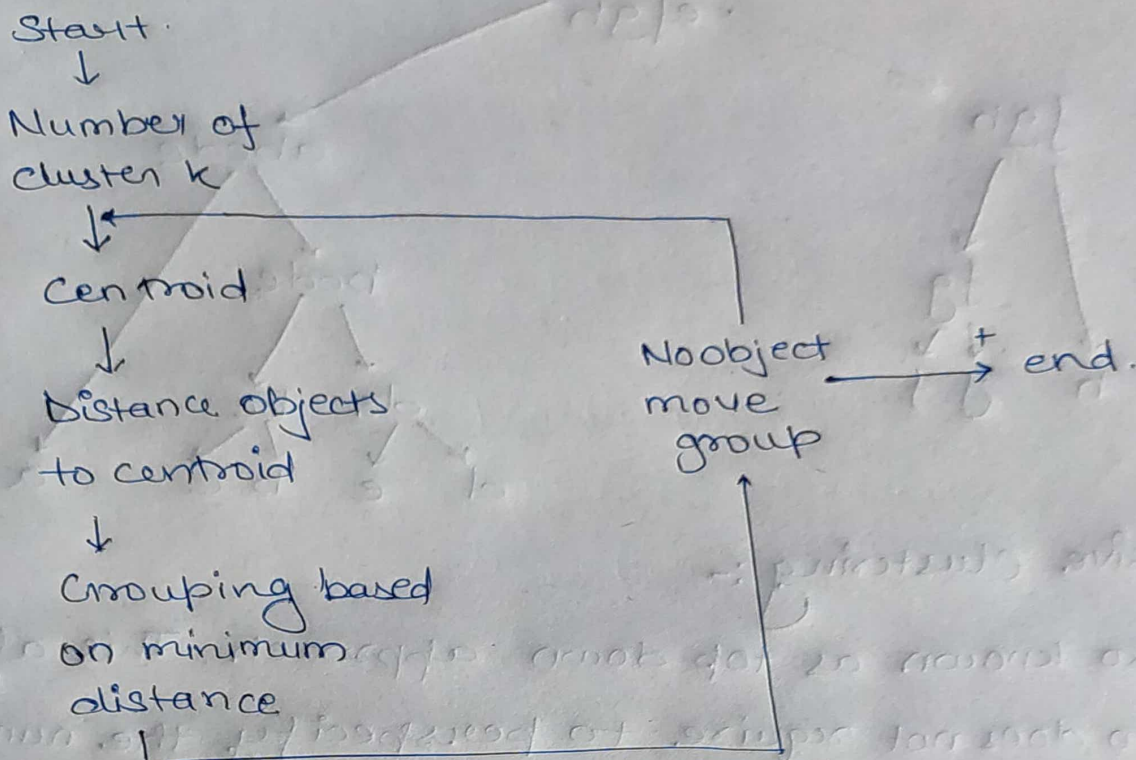 Start.
Number of
cluster k
Centroid
Distance objects
to centroid
Grouping based
on minimum
distance
No object
move
group
+
end.